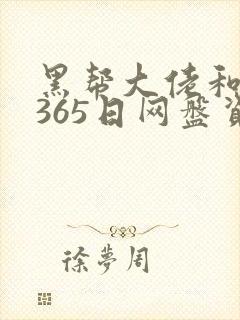 黑帮大佬和
365日网盘资
徐夢周